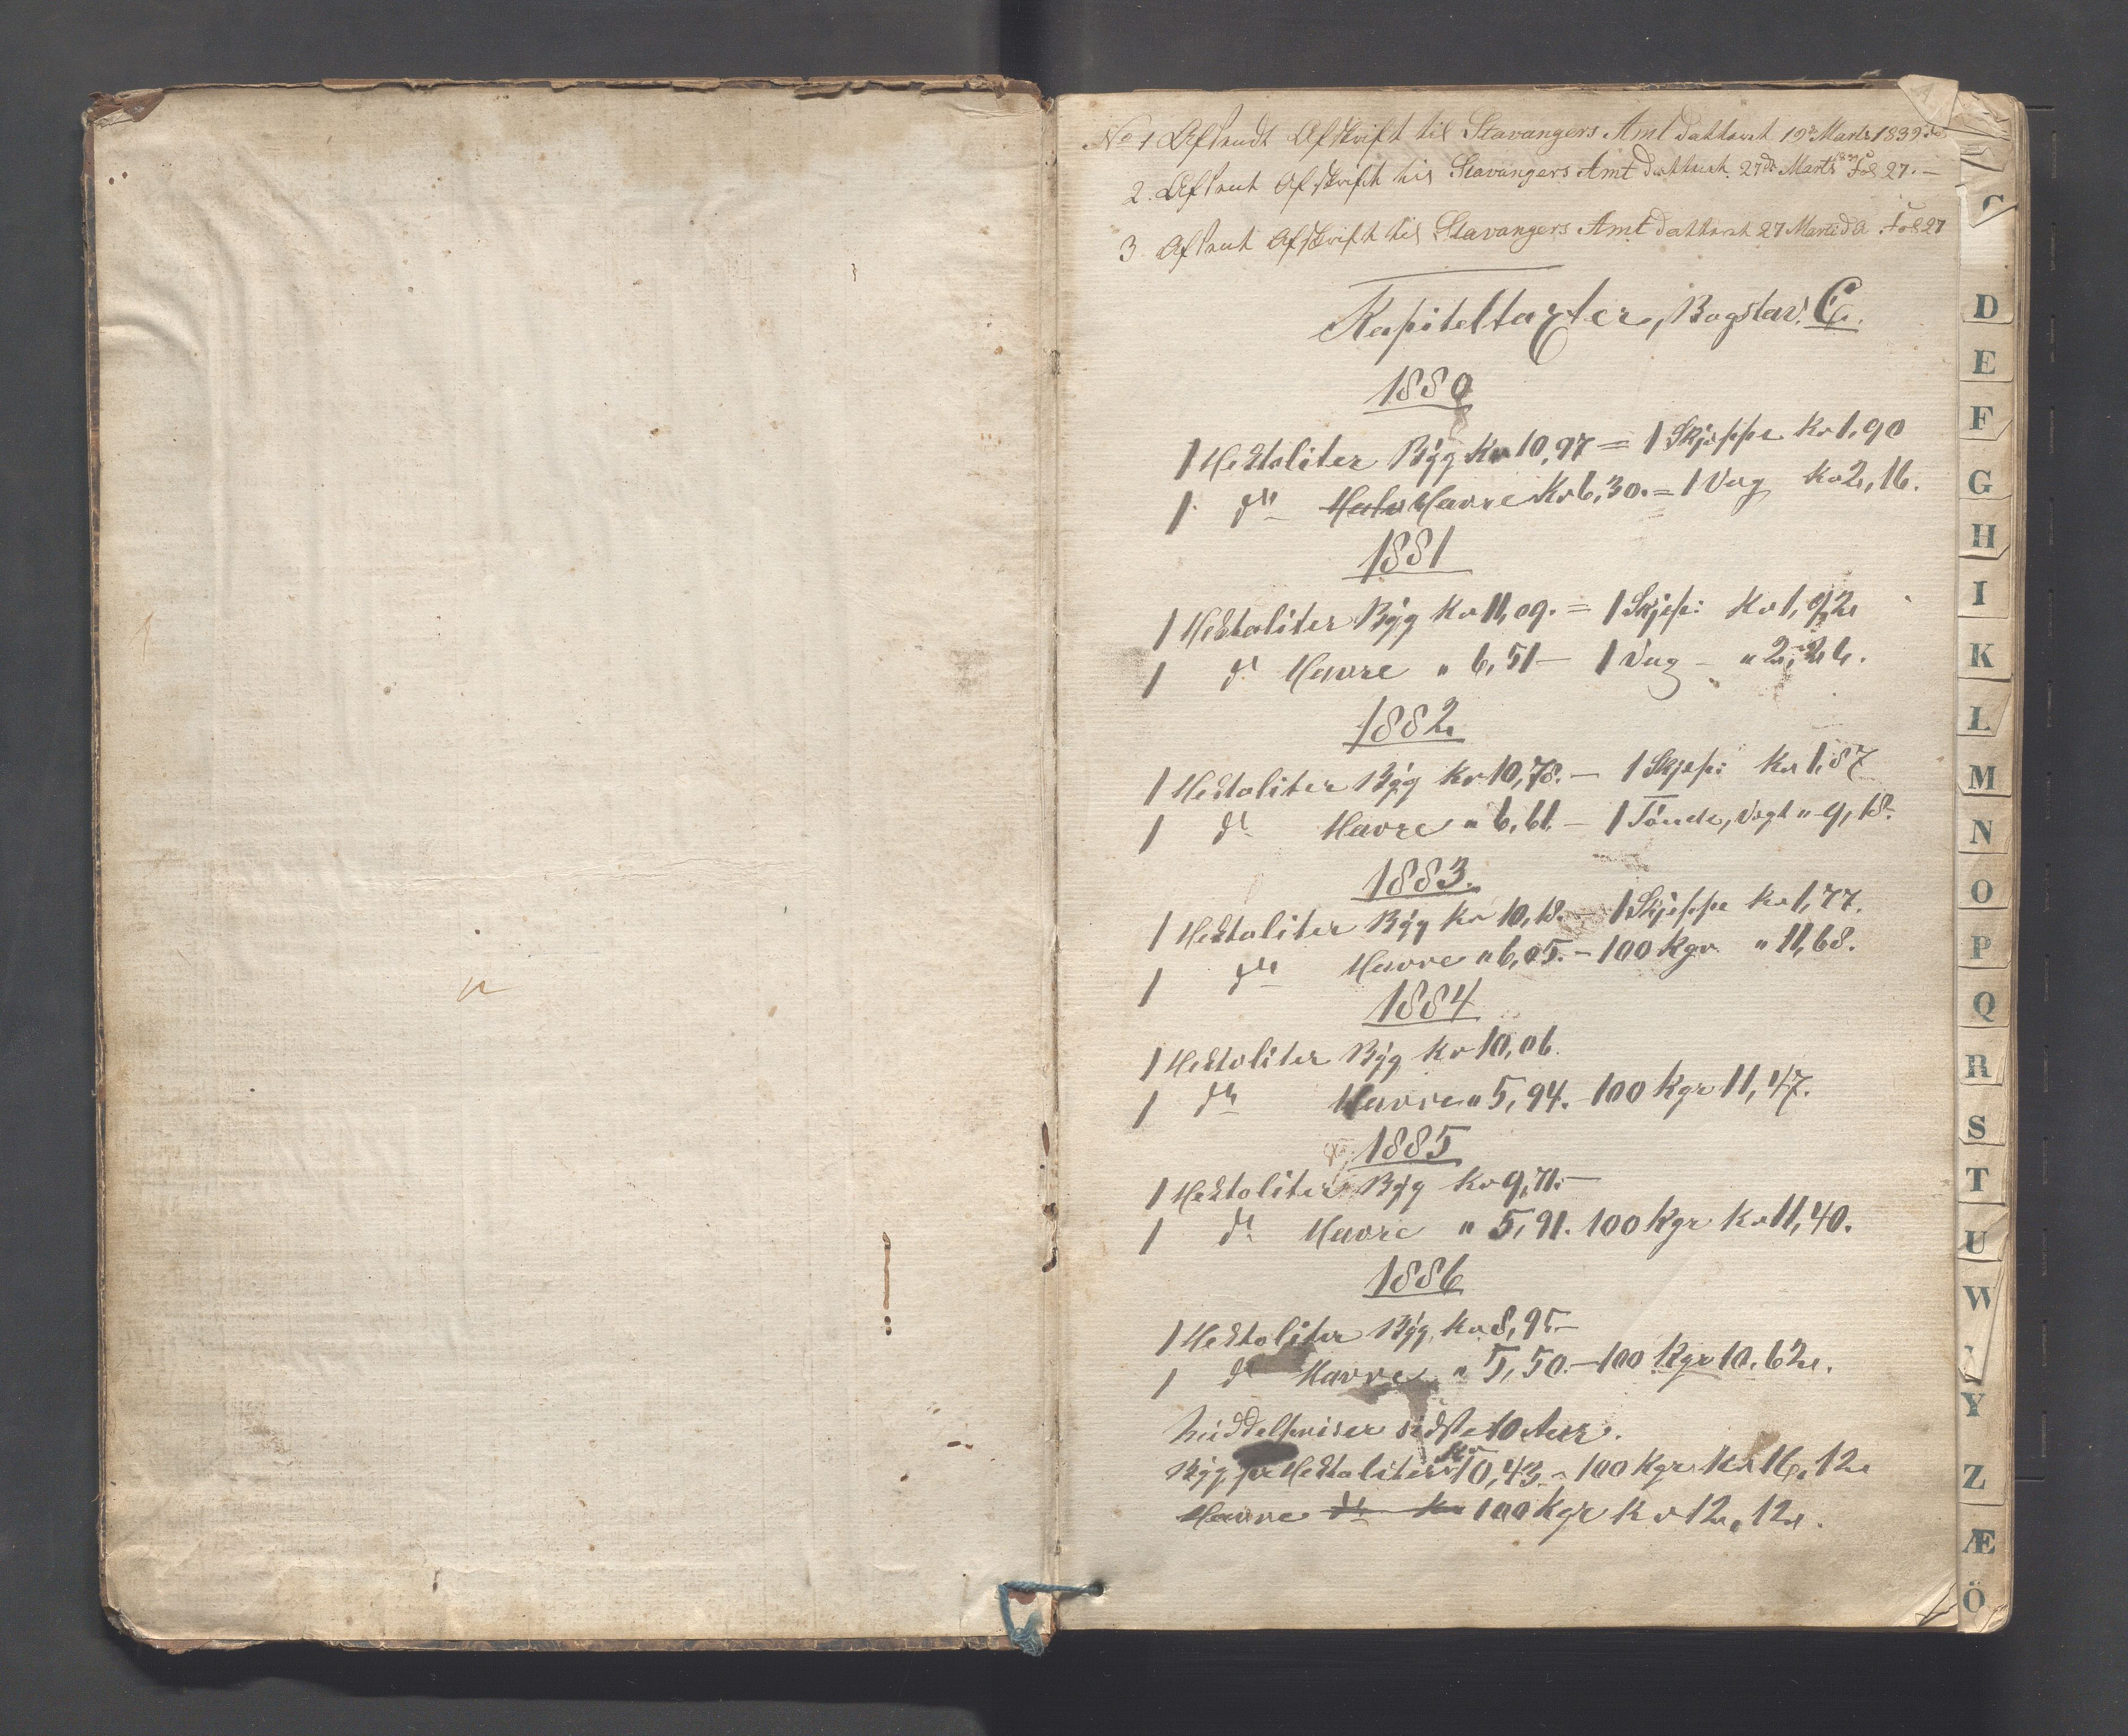 No 1 Afsendt Afskrift til Stavangers Amt datteret 19de Marts 1839
2. Afsent Afskrift til Stavangers Amt datteret 27de Marts 1839 Fol 27.-
3 Afsent Afskrift til Stavangers Amt datteret 27 Marts Fol 27
Kapiteltaxter, Bogstav. C.
1880
1 Hektoliter Byg Kr 10,97 = 1 Skjeppe Kr 1,90
1. do Halv Havre Kr 6,30. = 1 Vog Kr 2,16.
1881
1 Hektoliter Byg Kr 11,09. = 1 Skjep: Kr 1,92
1 do Havre " 6,51 - 1 Vog - " 2,24.
1882
1 Hektoliter Byg Kr 10,78. - 1 Skjep: Kr 1,87
1 do Havre " 6,61. - 1 Tönde, Vegt " 9,18.
1883.
1 Hektoliter Byg Kr 10,18. - 1 Skjeppe Kr 1,77.
1 do Havre " 6,05. - 100 Kgr " 11,68.
1884
1 Hektoliter Byg Kr 10,06.
1 do Havre " 5,94. - 100 Kgr 11,47.
1885
1 Hektoliter Byg Kr 9,71. -
1 do Havre " 5,91. 100 Kgr Kr 11,40.
1886
1 Hektoliter Byg. Kr 8,95. -
1 do Havre " 5,50. - 100 Kgr 10.62.
Middelpriser sidste 10 Aar.
Byg pr Hektoliter Kr 10,43. - 100 Kgr Kr 16,12
Havre do Kr 100 Kgr Kr 12,12.
A
C
D
E
F
G
H
I
K
L
M
N
O
P
Q
R
S
T
U
W
Y
Z
Æ
Ö